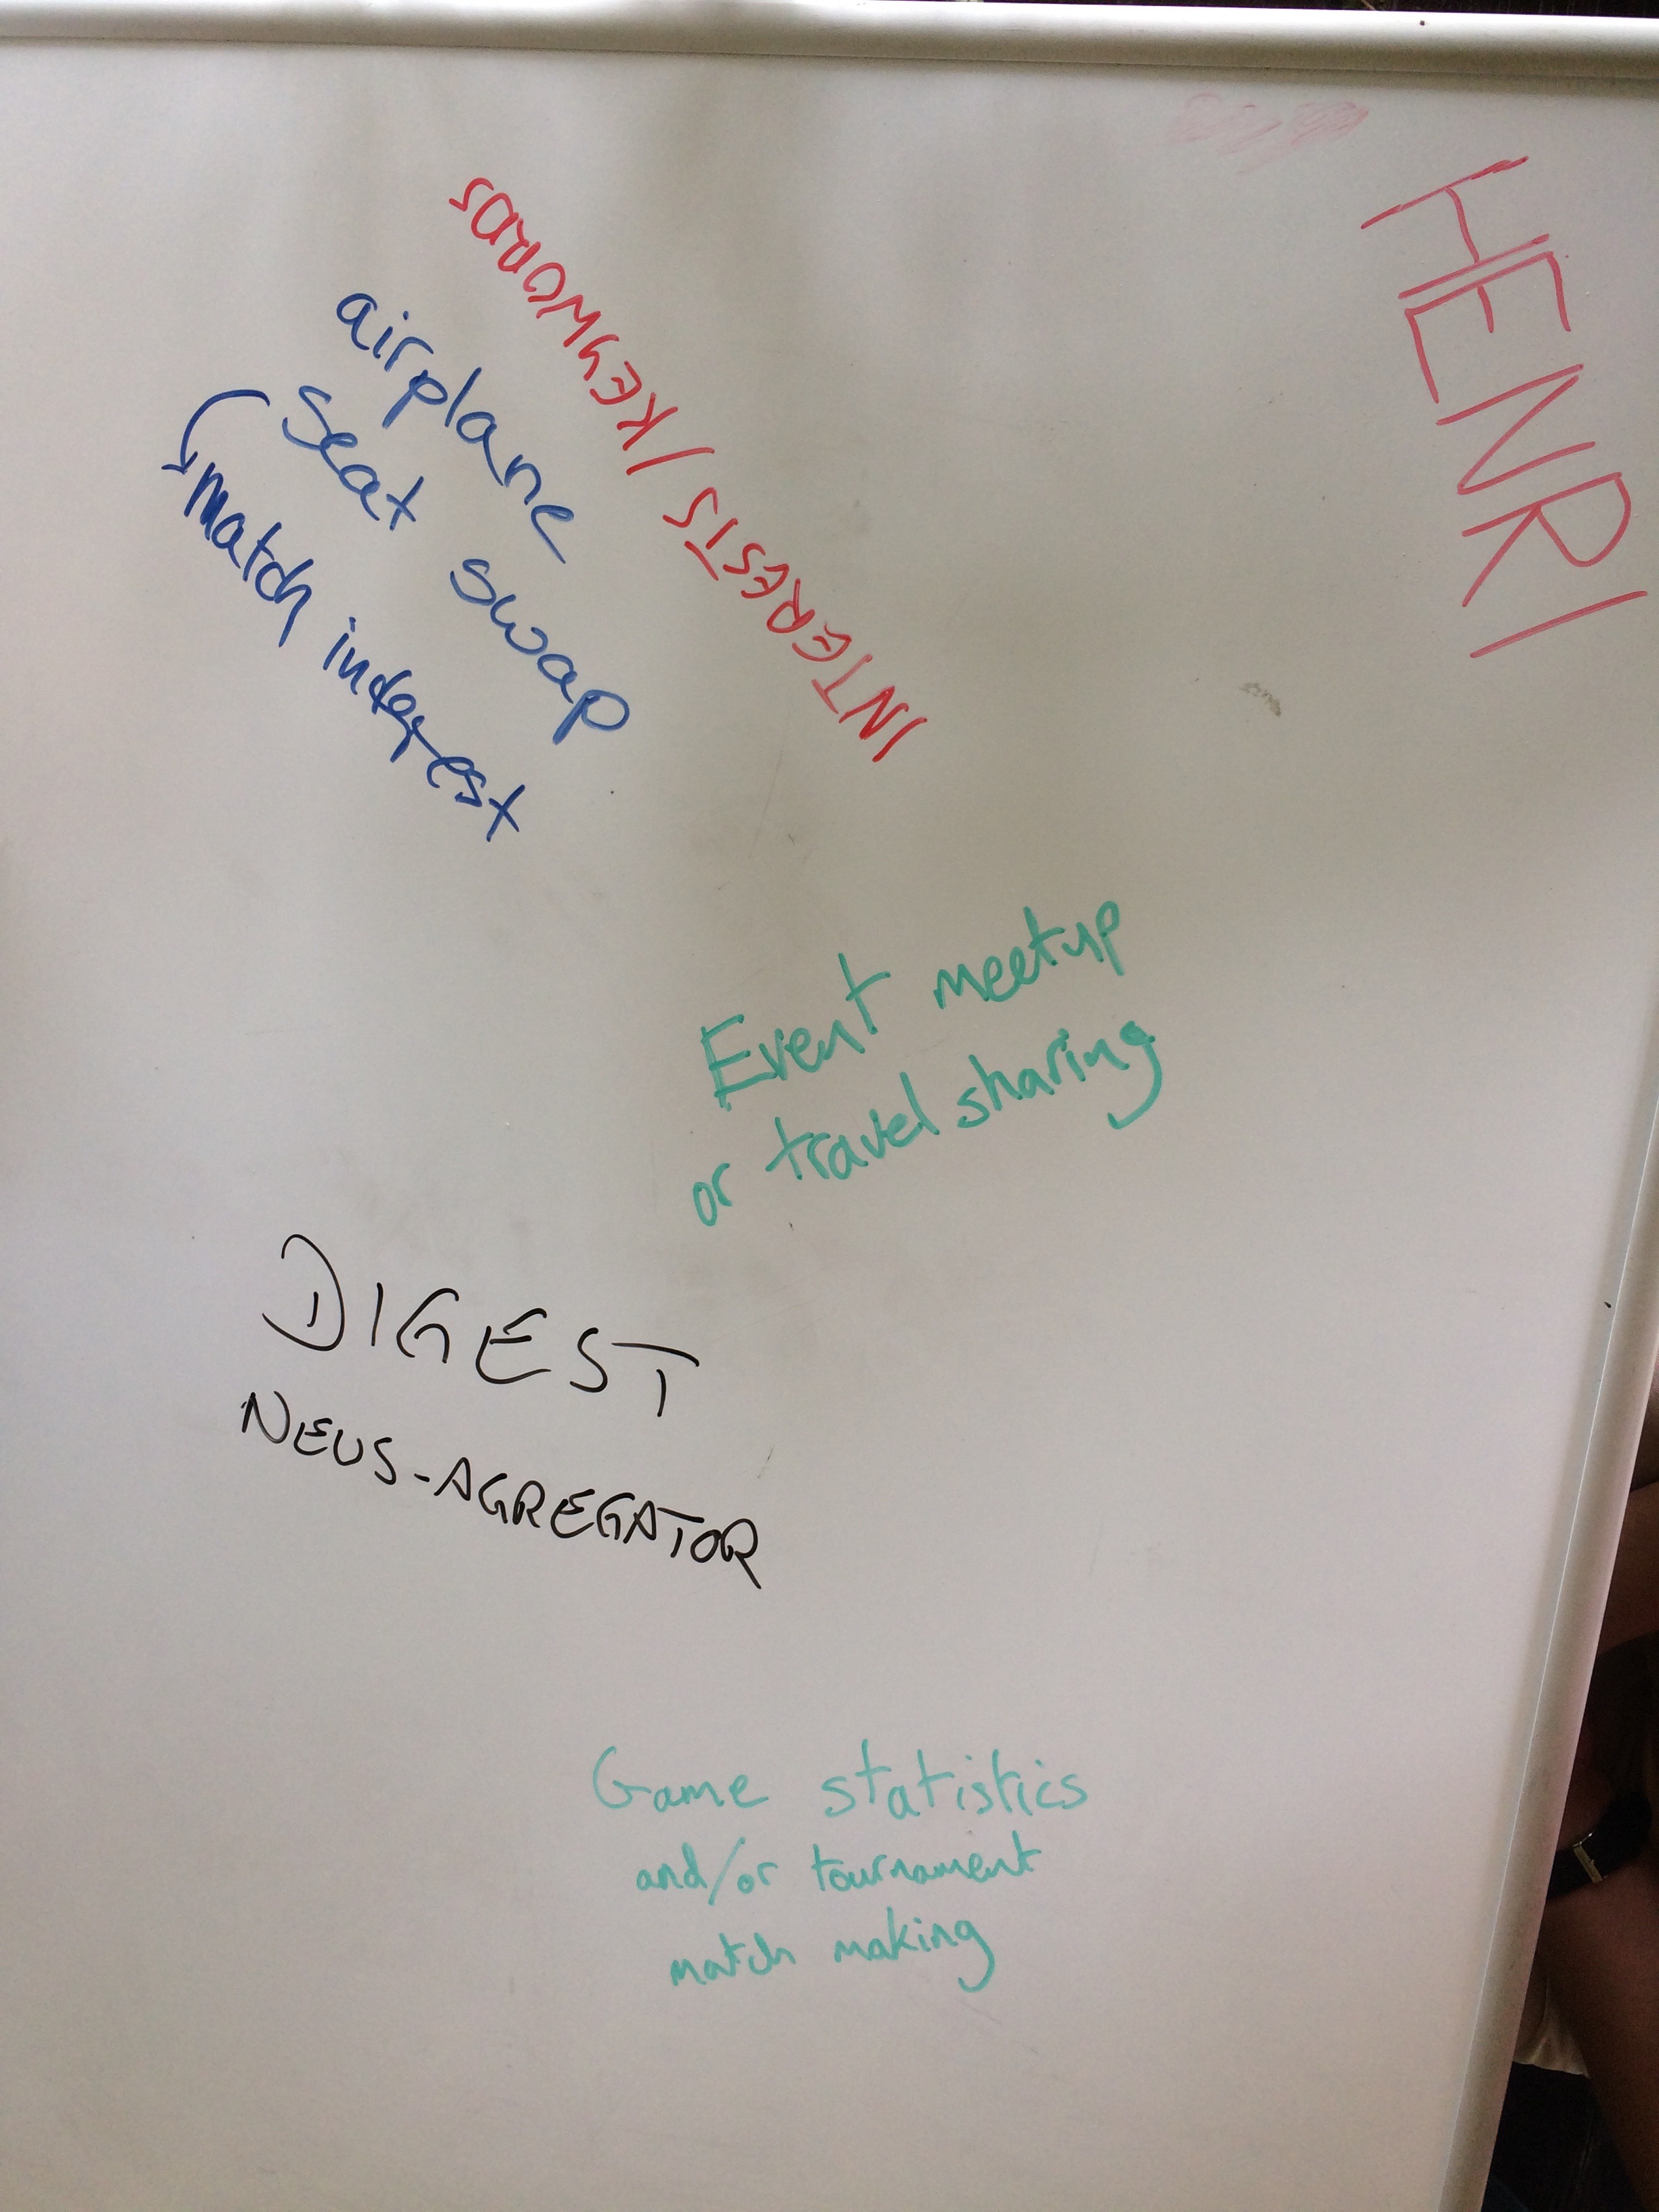 HENRI
INTERESTS / KEYWORDS
airplane
seat swap
match interest
Event meetup
or travel sharing
DIGEST
NEUS-AGREGATOR
Game statistics
and/or tournament
match making